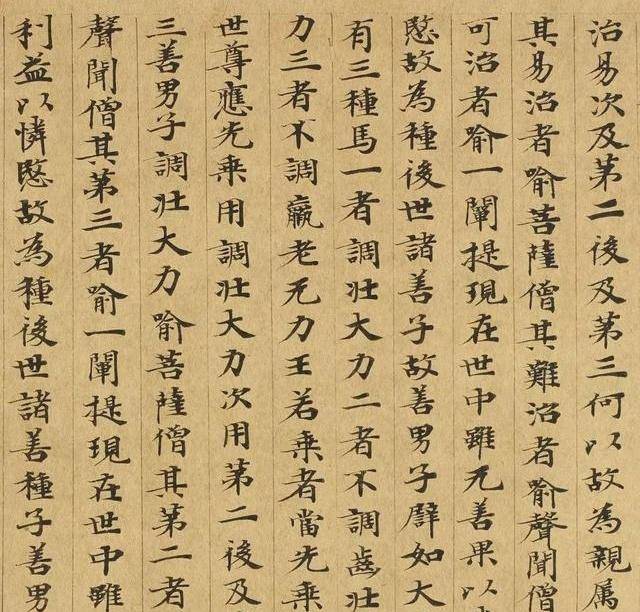 治易次及第二後及第三何以故為親属
其易治者喻菩薩僧其難治者喻聲聞僧
可治者喻一闡提現在世中雖无善果以
愍故為種後世諸善子故善男子譬如大
有三種馬一者調壯大力二者不調齒壯
力三者不調羸老无力王若乘者當先乘
世尊應先乘用調壯大力次用第二後及
三善男子調壯大力喻菩薩僧其第二者
聲聞僧其第三者喻一闡提現在世中雖
利益以憐愍故為種後世諸善種子善男